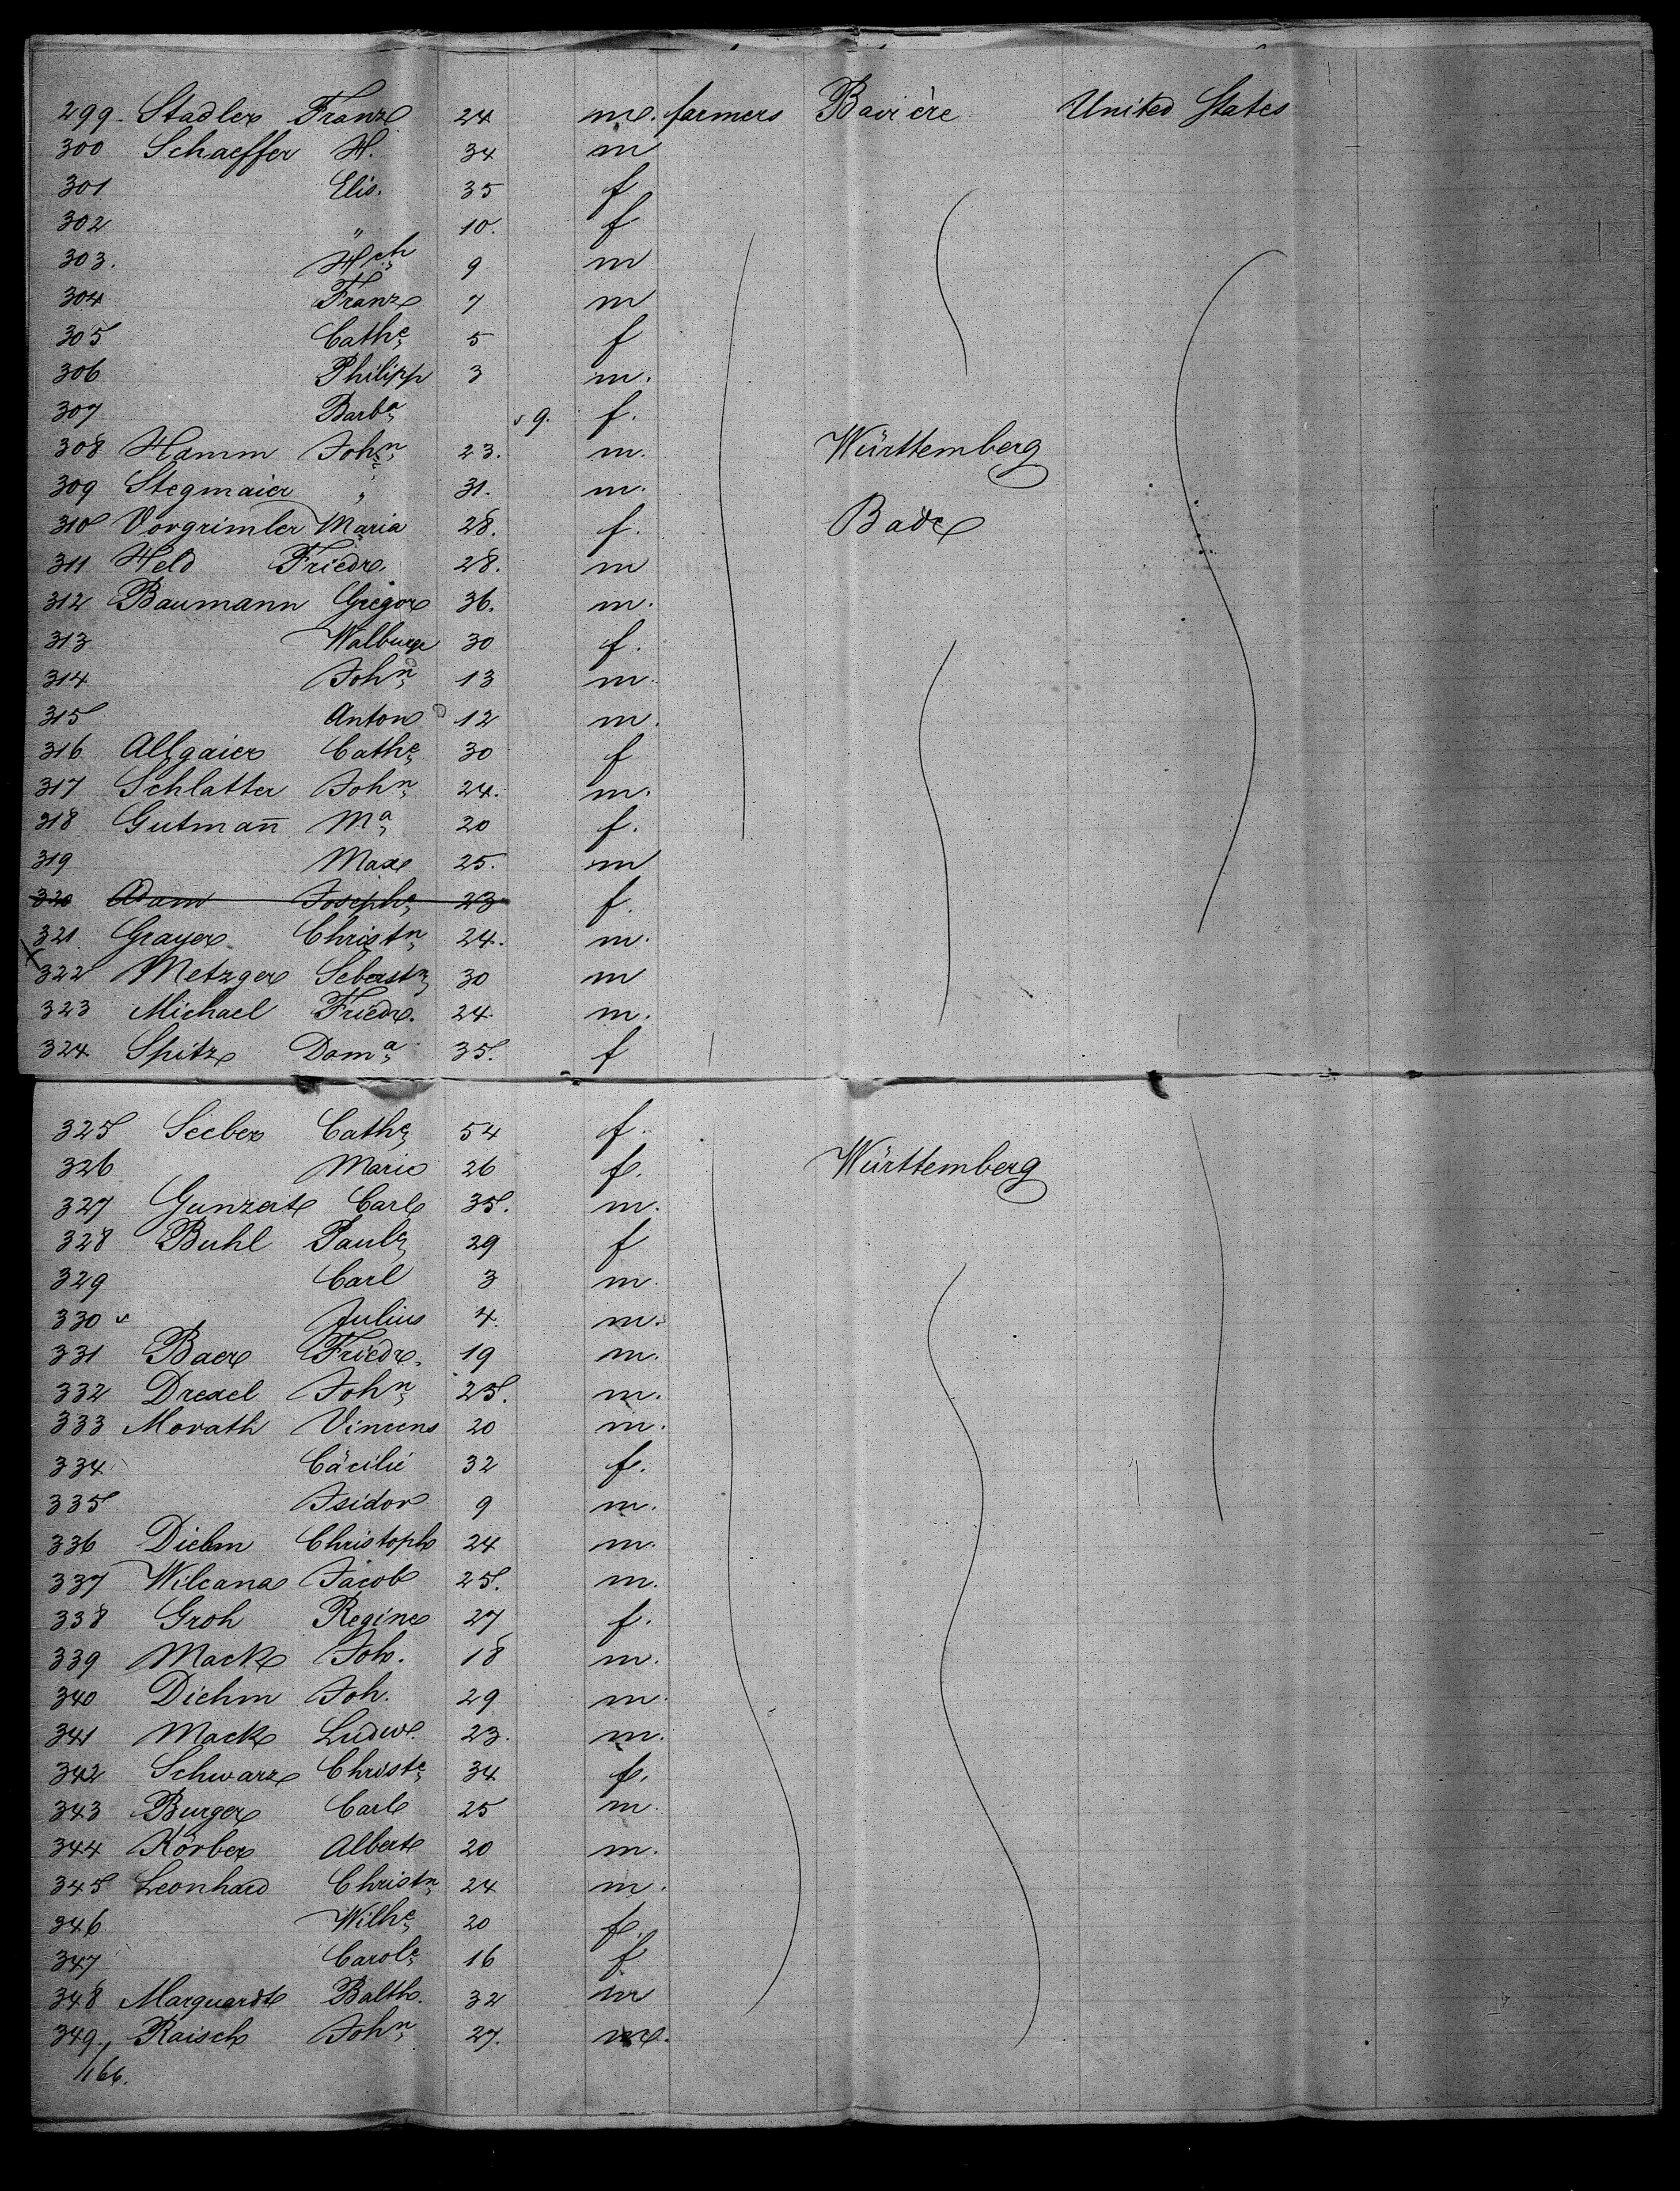 299. Stadler Franz 24 m. farmers Bavière United States
300 Schaeffer H. 34 m
301 Elis. 35 f
302 " 10. f
303. Hch 9 m
304 Franz 7 m
305 Cathe 5 f
306 Philipp 3 m.
307 Barba 9. f.
308 Hamm John 23. m. Württemberg
309 Stegmaier " 31. m.
310 Vorgrimler Maria 28. f. Bade
311 Held Friedr. 28. m
312 Baumann Gregor 36. m.
313 Walburga 30 f.
314 John 13 m.
315 Anton 12 m.
316 Allgaier Cathe 30 f
317 Schlatter John 24. m.
318 Gutmañ Ma 20 f.
319 Max 25. m
320 Adam Josephe 23 f.
321. Grayer Christn 24. m.
322 Metzger Sebastn 30 m
323 Michael Friedr. 24 m.
324 Spitz Doma 35. f
325 Seeber Cathe 54 f.
326 Marie 26 f. Württemberg
327 Gunzert Carl 35. m.
328 Buhl Paule 29 f
329 Carl 3 m.
330 Julius 4. m.
331 Baer Friedr. 19 m.
332 Drexel John 25. m.
333 Morath Vincens 20 m.
334 Cäcilie 32 f.
335 Isidor 9 m.
336 Diehm Christoph 24 m.
337 Jacob 25. m.
338 Groh Regine 27 f.
339 Mack Joh. 18 m.
340 Diehm Joh. 29 m.
341 Mack Ludw. 23. m.
342 Schwarz Christe 34 f.
343 Burger Carl 25 m.
344 Körber Albert 20 m.
345 Leonhard Christn 24 m.
346 Wilhe 20 f.
347 Carole 16 f
348 Marquardt Balth. 32 m
349. Raisch John 27. m.
166.